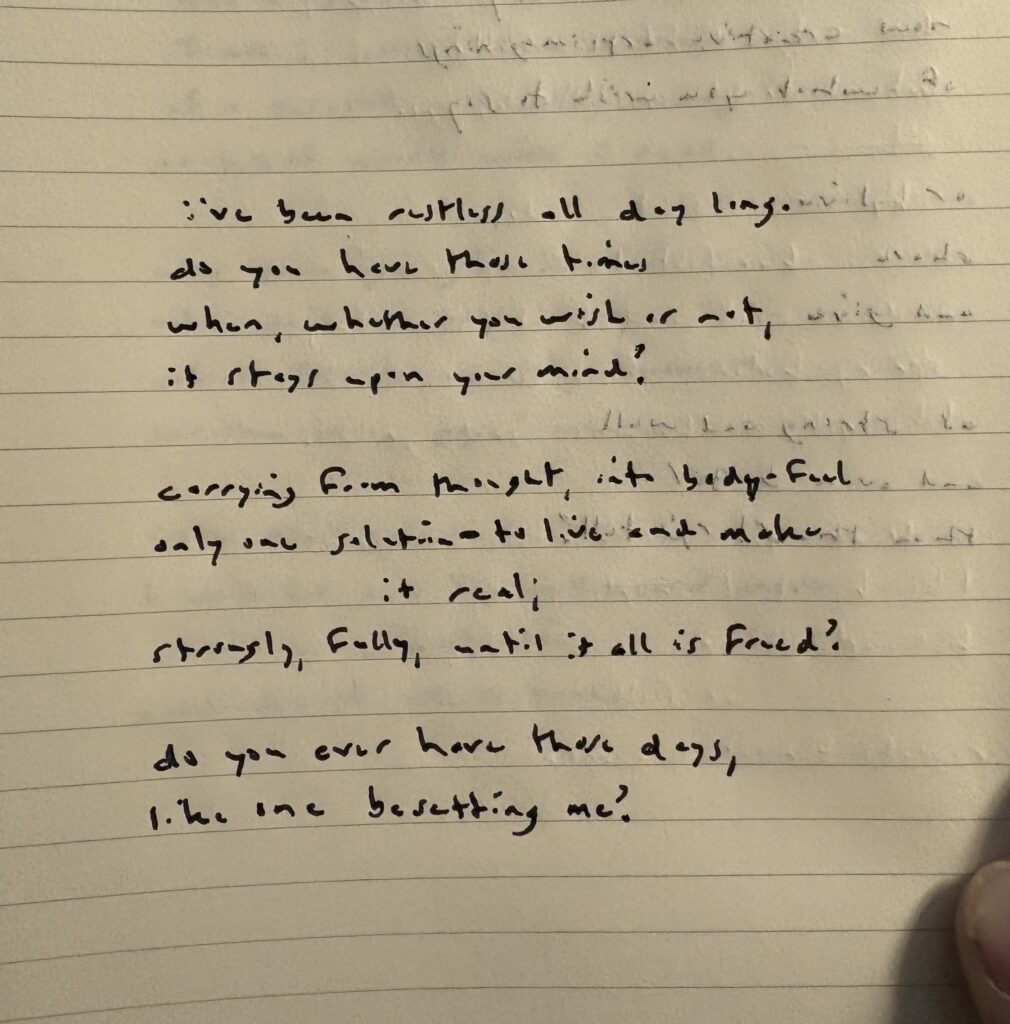 i've been restless all day long.
do you have those times
when, whether you wish or not,
it stays upon your mind?
carrying from thought, into body-feel
only one solution to live and make
it real;
strongly, fully, until it all is freed?
do you ever have those days,
like one besetting me?